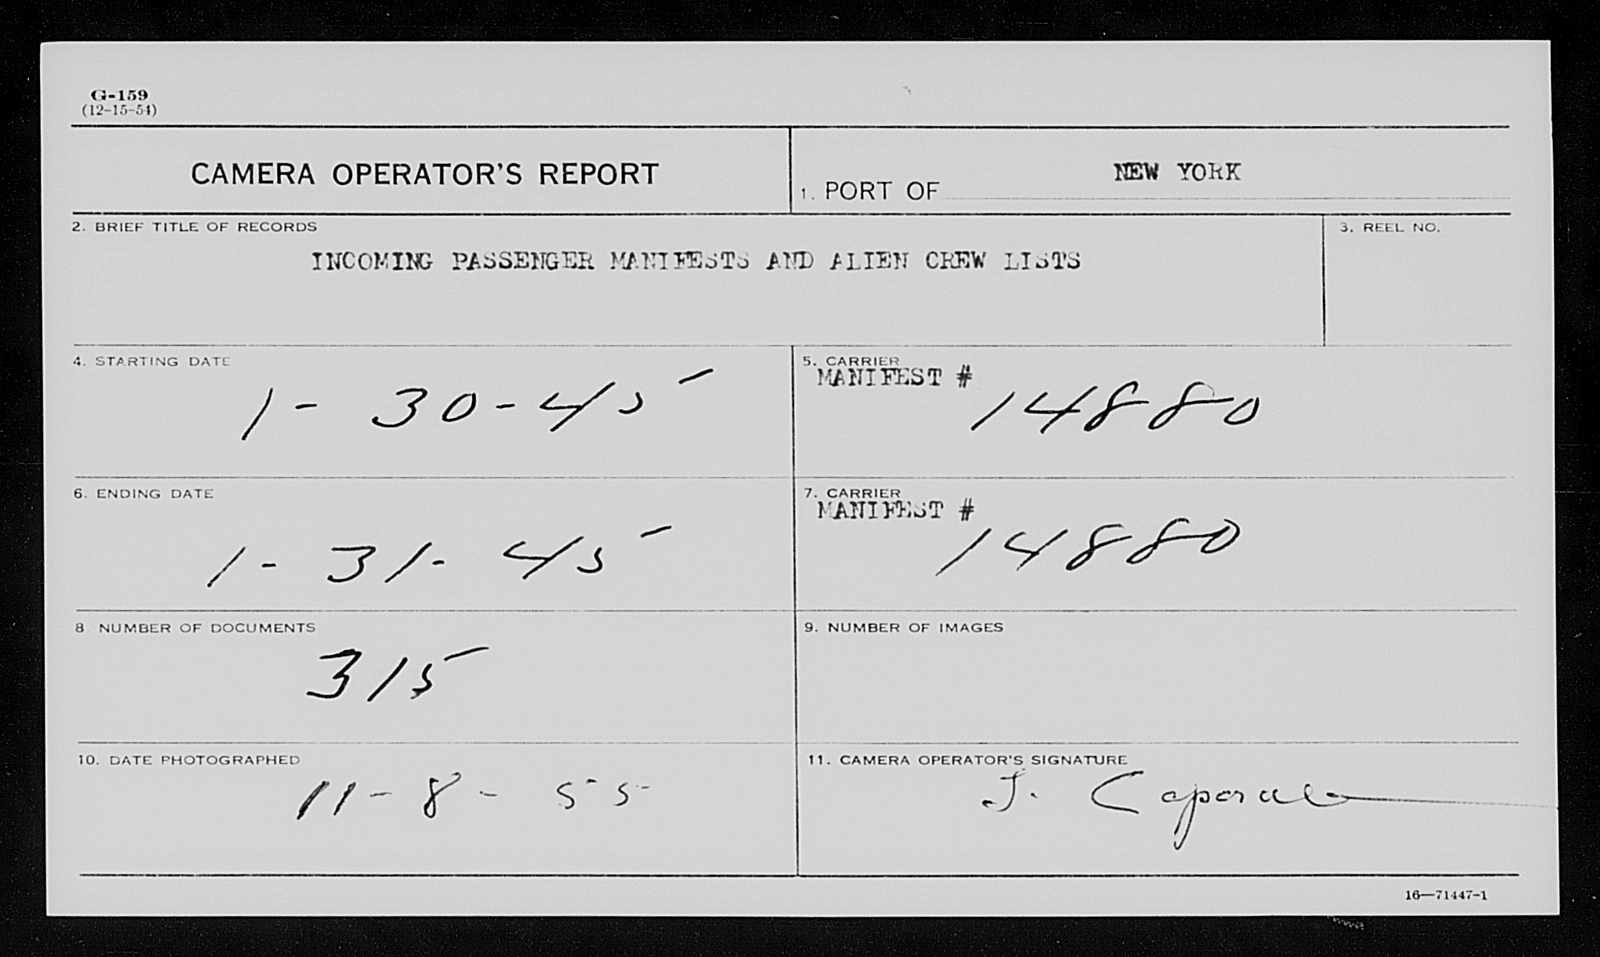 G-159
(12-15-54)
CAMERA OPERATOR'S REPORT
1. PORT OF NEW YORK
2. BRIEF TITLE OF RECORDS
INCOMING PASSENGER MANIFESTS AND ALIEN CREW LISTS
3. REEL NO.
4. STARTING DATE
1-30-45
5. CARRIER
MANIFEST # 14880
6. ENDING DATE
1-31-45
7. CARRIER
MANIFEST # 14880
8 NUMBER OF DOCUMENTS
315
9. NUMBER OF IMAGES
10. DATE PHOTOGRAPHED
11-8-55
11. CAMERA OPERATOR'S SIGNATURE
J. Caporale
16—71447-1